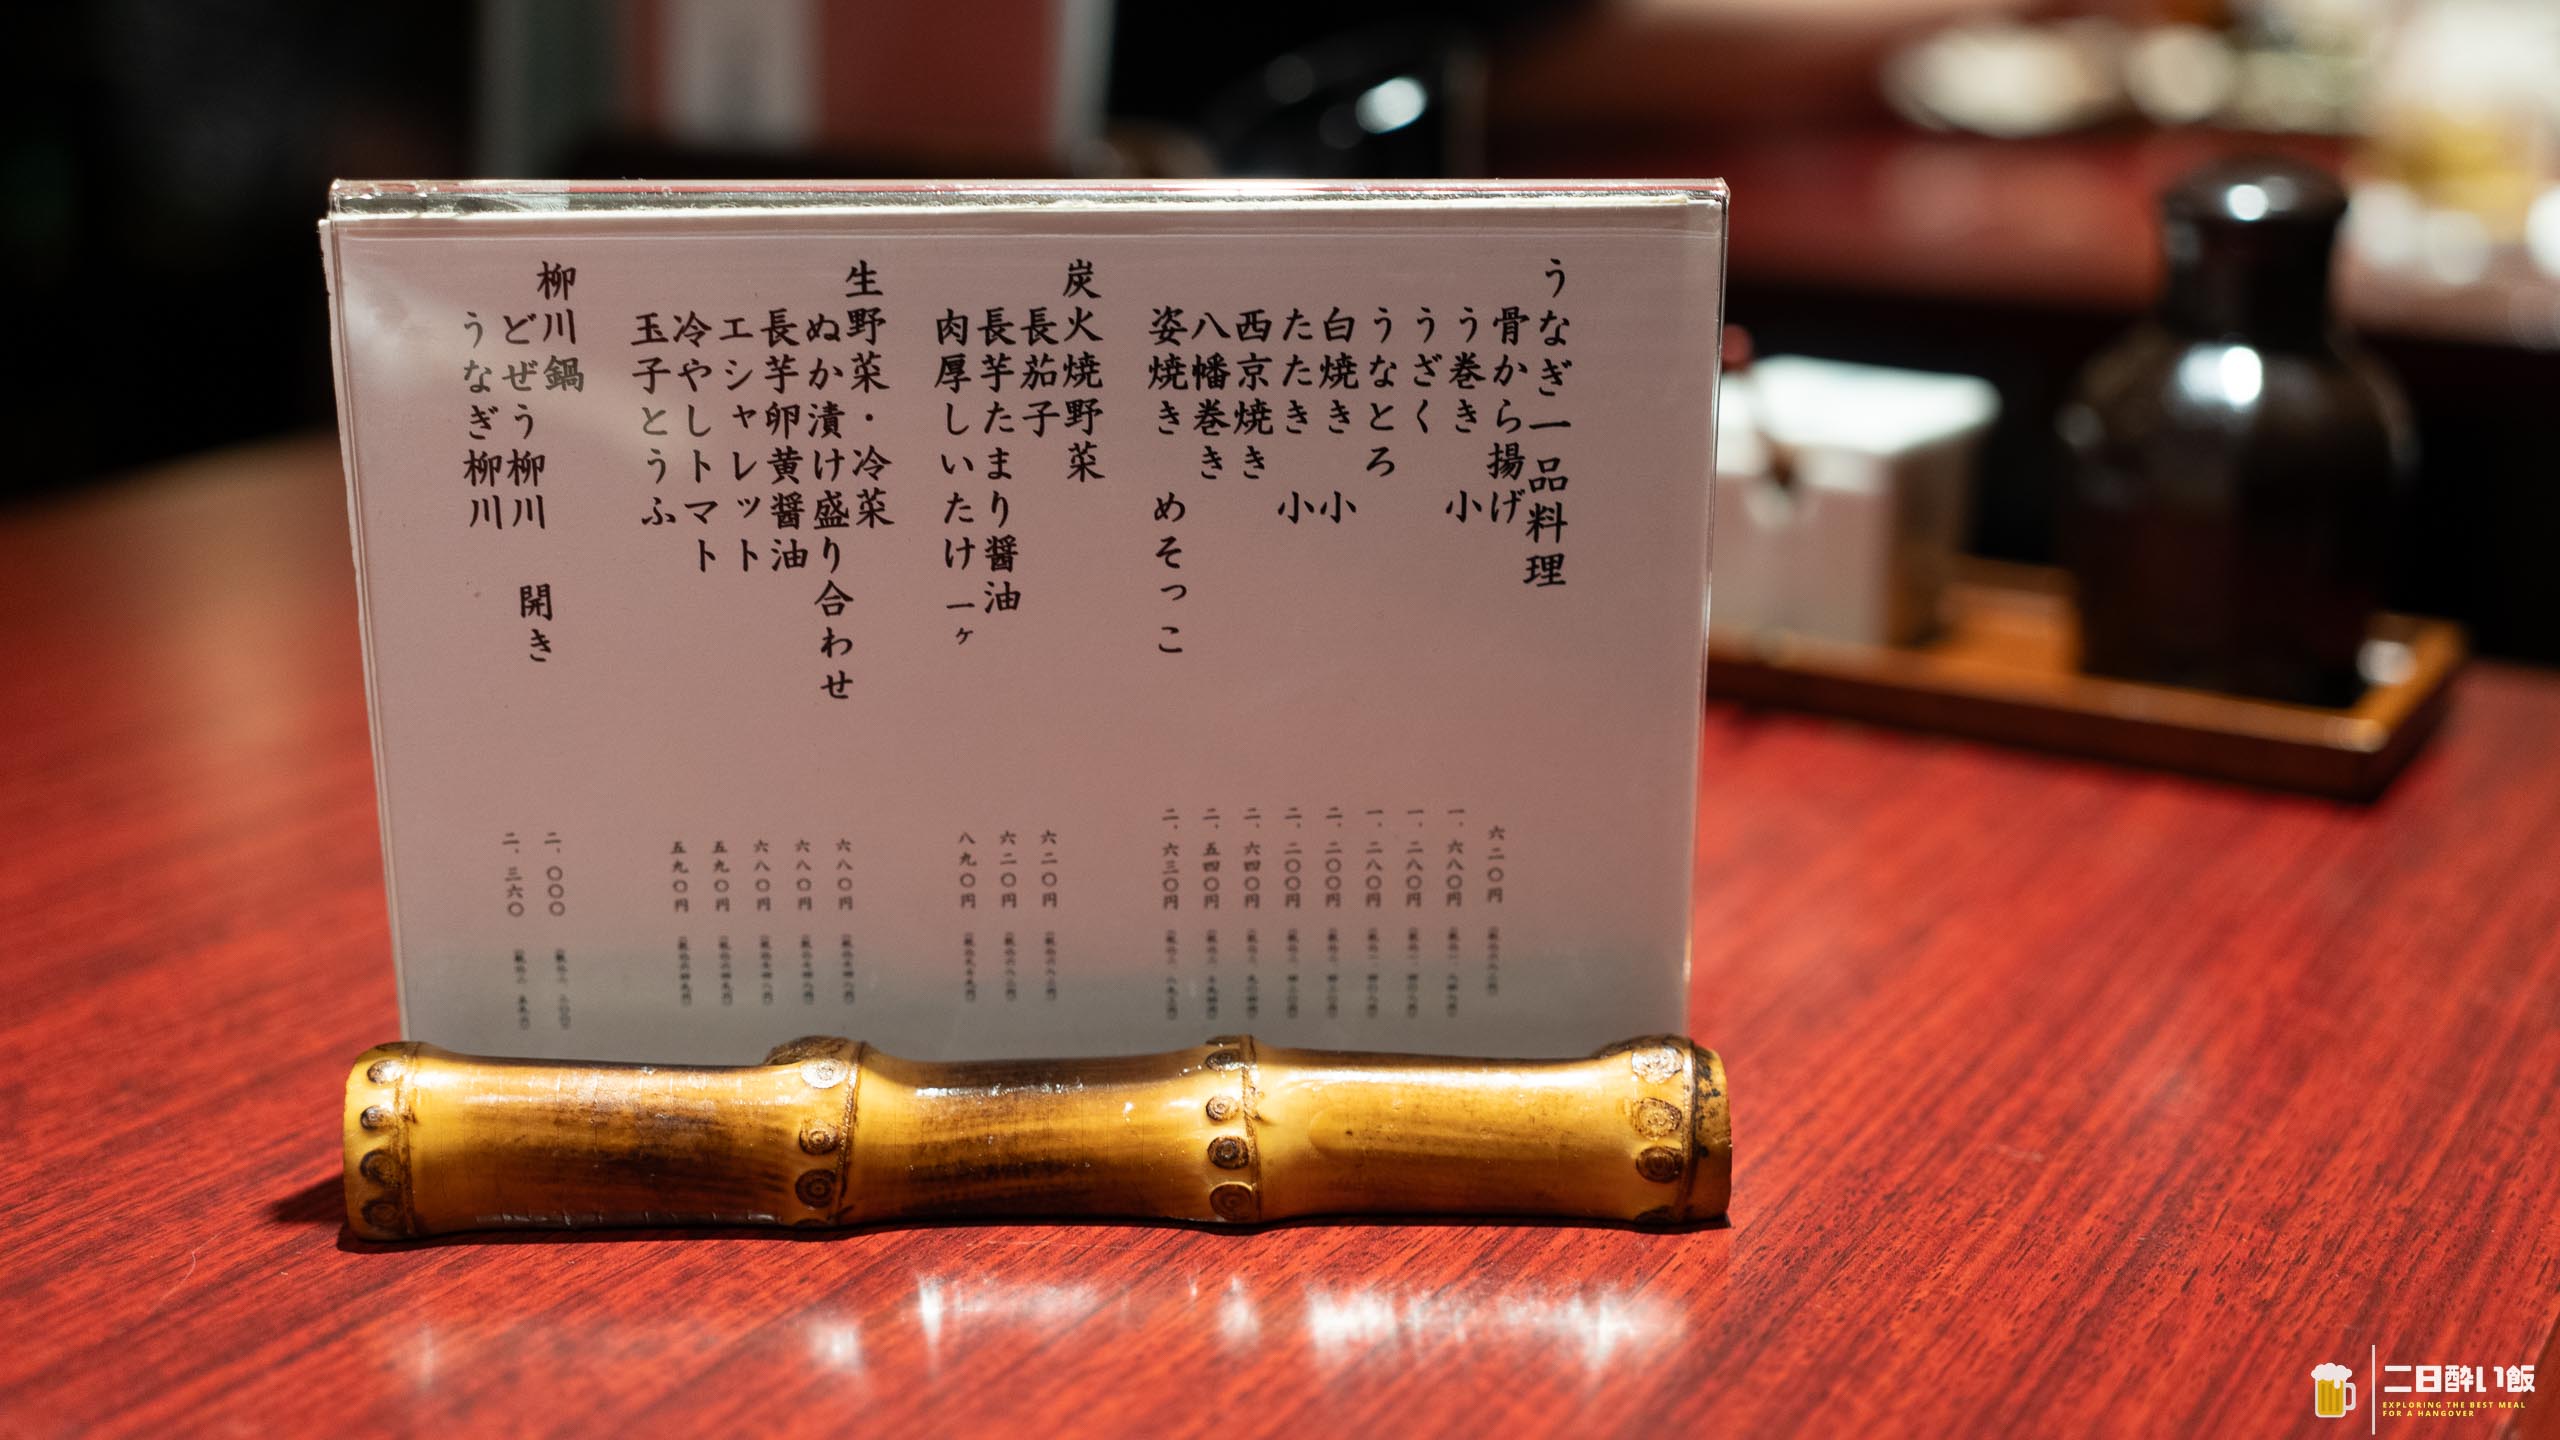 うなぎ一品料理
骨から揚げ 六二〇円
う巻き 小 一、六八〇円
うざく 一、二八〇円
うなとろ 一、二八〇円
白焼き 小 二、二〇〇円
たたき 小 二、二〇〇円
西京焼き 二、六四〇円
八幡巻き 二、五四〇円
姿焼き めそっこ 二、六三〇円
炭火焼野菜
長茄子 六二〇円
長芋たまり醤油 六二〇円
肉厚しいたけ 一ヶ 八九〇円
生野菜・冷菜
ぬか漬け盛り合わせ 六八〇円
長芋卵黄醤油 六八〇円
エシャレット 六八〇円
冷やしトマト 五九〇円
玉子とうふ 五九〇円
柳川鍋
どぜう柳川 開き 二、〇〇〇
うなぎ柳川 二、三六〇
二日酔い飯
EXPLORING THE BEST MEAL
FOR A HANGOVER